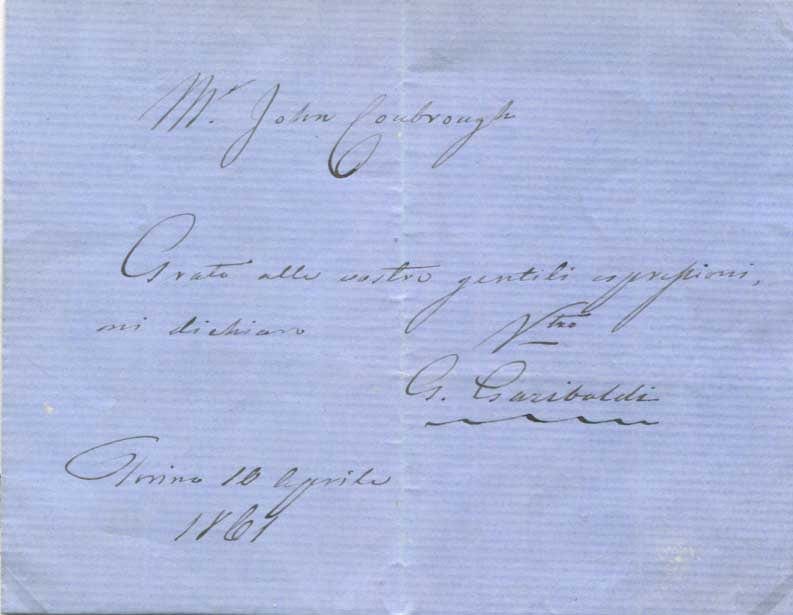 Mr. John Coubrough
Grato alle vostre gentili espressioni,
mi dichiaro
Vtro
G. Garibaldi
Torino 10 Aprile
1861